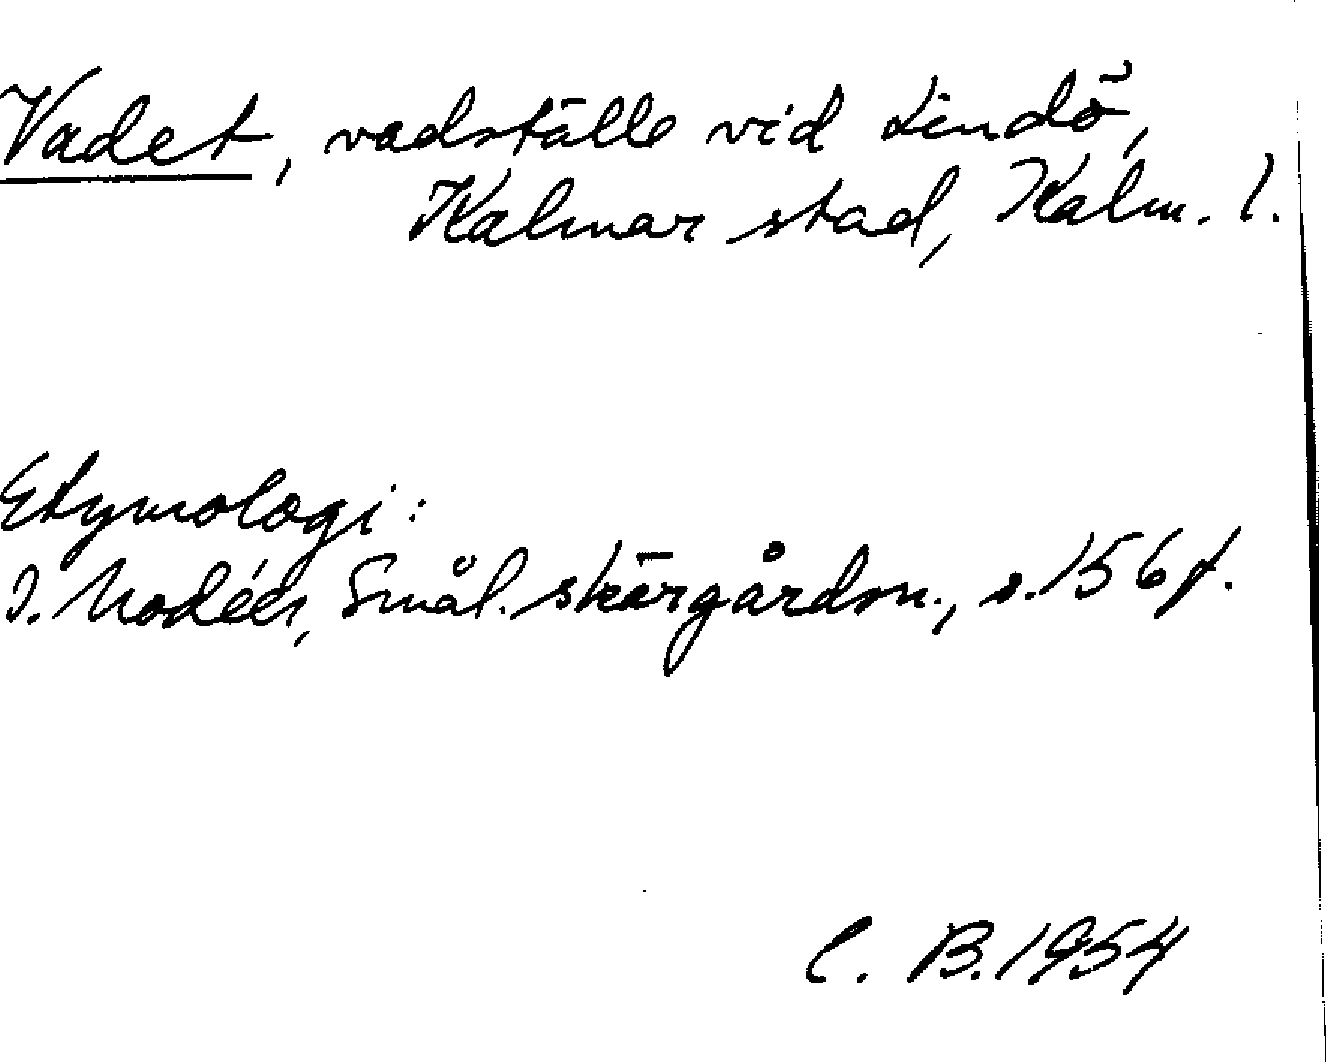 Vadet, vadställe vid Lindö,
Kalmar stad, Kalm. l.
Etymologi:
I. Modéer, Smål. skärgårdsn., s. 156 f.
C. B. 1954